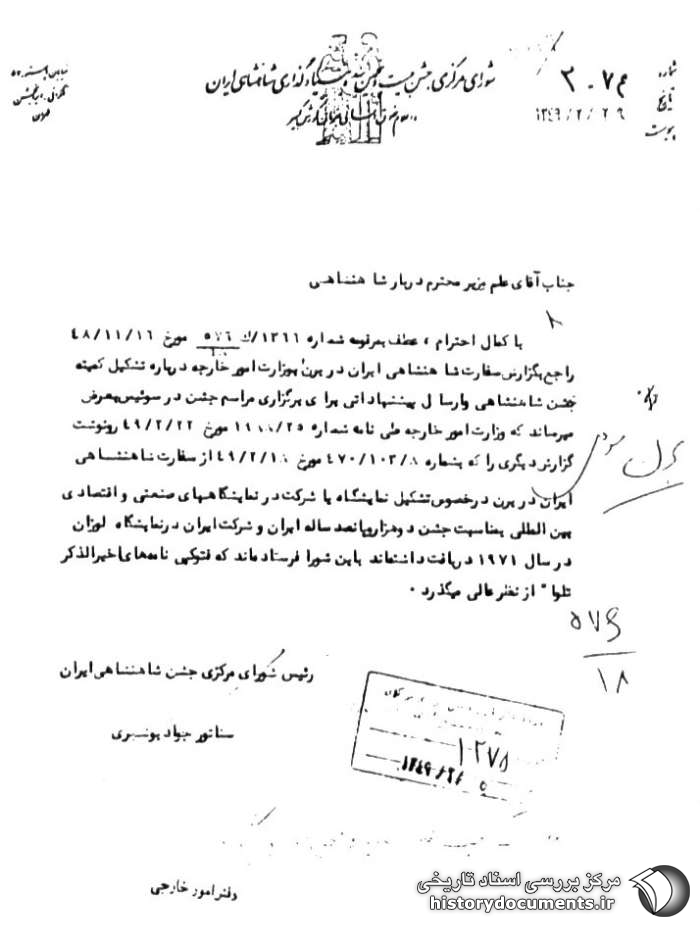 شماره ۳۰۷۴
تاریخ ۱۳۴۹/۲/۲۹
پیوست
شورای مرکزی جشن بیست و پنجمین سده بنیادگذاری شاهنشاهی ایران
تهران
جناب آقای علم وزیر محترم دربار شاهنشاهی
با کمال احترام ، عطف بمرقومه شماره ۱۳۶۱/ک ۵۷۶ مورخ ۴۸/۱۱/۱۶
راجع بگزارش سفارت شاهنشاهی ایران در برن بوزارت امور خارجه درباره تشکیل کمیته
جشن شاهنشاهی وارسال پیشنهاداتی برای برگزاری مراسم جشن در سوئیس بعرض
میرساند که وزارت امور خارجه طی نامه شماره مورخ ۴۹/۲/۲۲ رونوشت
گزارش دیگری را که بشماره ۴۷۰/۱۰۳/۸ مورخ ۴۹/۲/۱۸ از سفارت شاهنشاهی
ایران در برن درخصوص تشکیل نمایشگاه یا شرکت در نمایشگاههای صنعتی و اقتصادی
بین المللی بمناسبت جشن دوهزاروپانصد ساله ایران و شرکت ایران درنمایشگاه لوزان
در سال ۱۹۷۱ دریافت داشته‌اند باین شورا فرستاده‌اند که فتوکپی نامه‌های اخیرالذکر
تلوا" از نظر عالی میگذرد .
۵۷۶
۱۸
رئیس شورای مرکزی جشن شاهنشاهی ایران
سناتور جواد بوشهری
۱۲۷۸
دفتر امور خارجی
مرکز بررسی اسناد تاریخی
historydocuments.ir